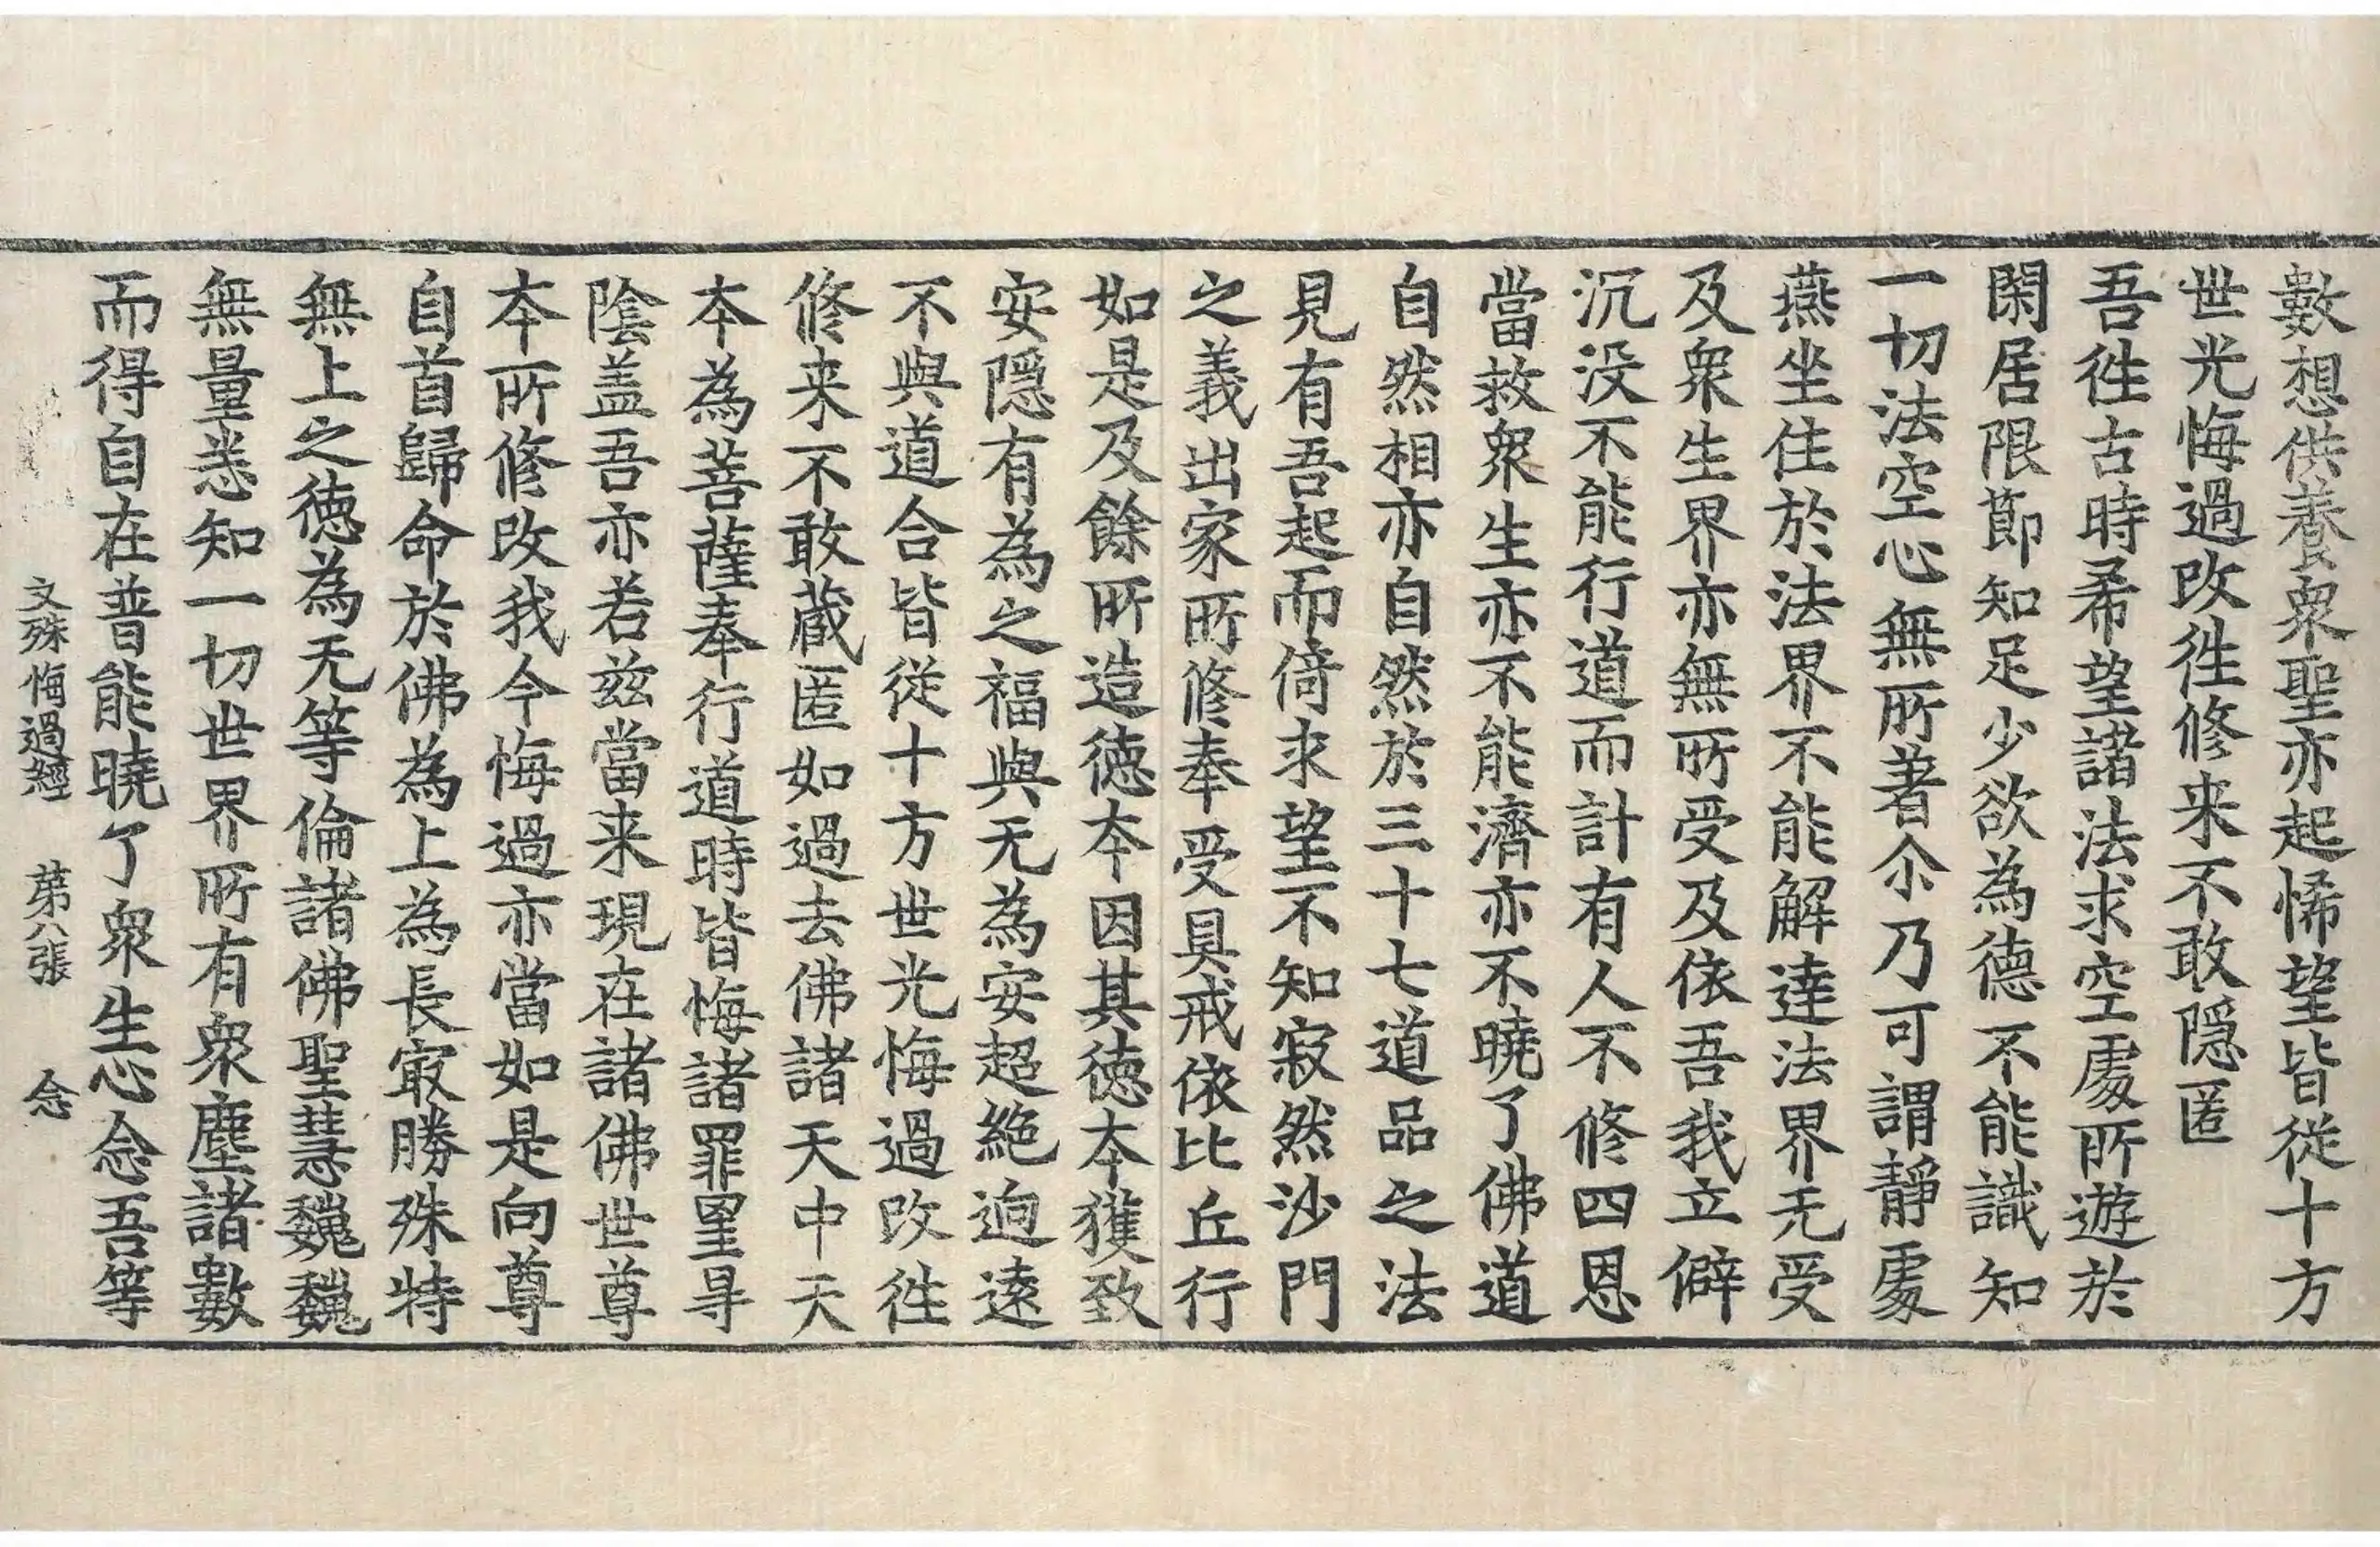 數想供養衆聖亦起悕望皆從十方
世光悔過改徃修来不敢隱匿
吾徃古時希望諸法求空處所遊於
閑居限節知足少欲為德不能識知
一切法空心無所著尒乃可謂靜處
燕坐住於法界不能解達法界无受
及衆生界亦無所受及依吾我立僻
沉没不能行道而計有人不修四恩
當救衆生亦不能濟亦不曉了佛道
自然相亦自然於三十七道品之法
見有吾起而倚求望不知寂然沙門
之義出家所修奉受具戒依比丘行
如是及餘所造德本因其德本獲致
安隱有為之福與无為安超絶逈遠
不與道合皆從十方世光悔過改徃
修来不敢蔵匿如過去佛諸天中天
本為菩薩奉行道時皆悔諸罪罣㝵
陰盖吾亦若兹當来現在諸佛世尊
本所修改我今悔過亦當如是向尊
自首歸命於佛為上為長㝡勝殊特
無上之徳為无等倫諸佛聖慧巍巍
無量悉知一切世界所有衆塵諸數
而得自在普能曉了衆生心念吾等
文殊悔過經 苐六張 念